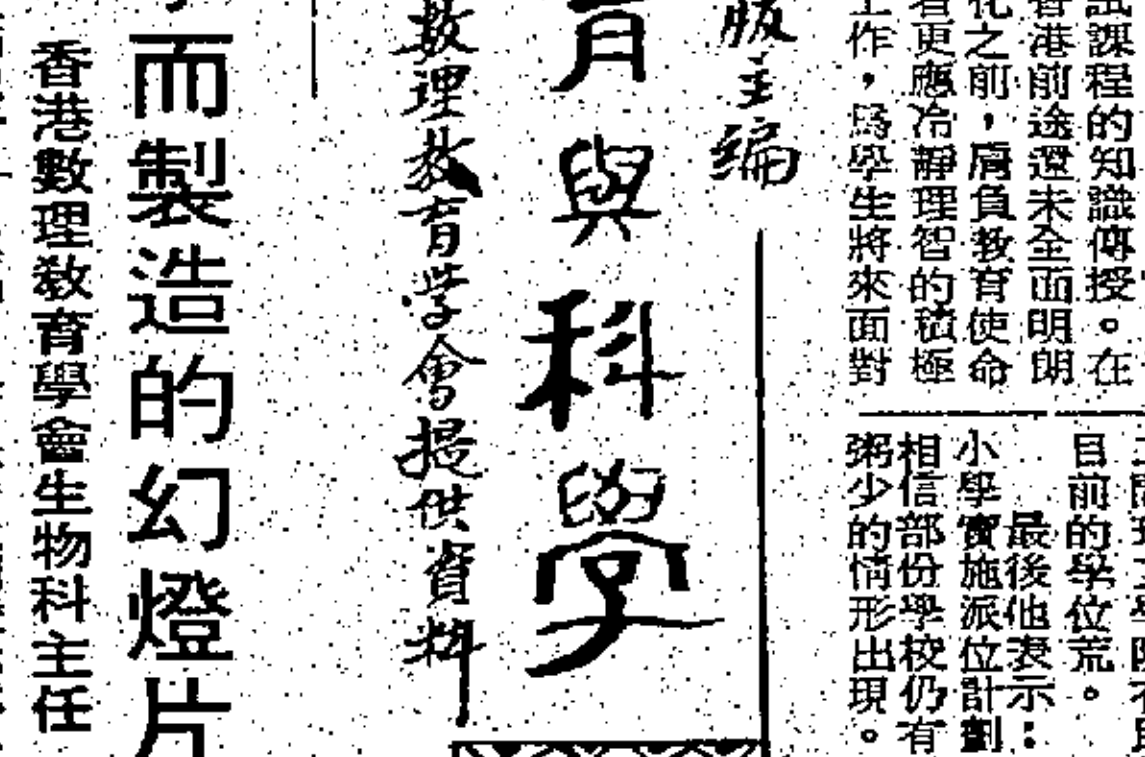 試課程的知識傳授。在
香港前途還未全面明朗
化之前，肩負教育使命
者更應冷靜理智的積極
工作，爲學生將來面對
目前的學位荒。
最後他表示：
小學實施派位計劃
相信部份學校仍有
粥少的情形出現。
版主编
育與科學
数理教育学會提供資料
而製造的幻燈片
香港數理教育學會生物科主任